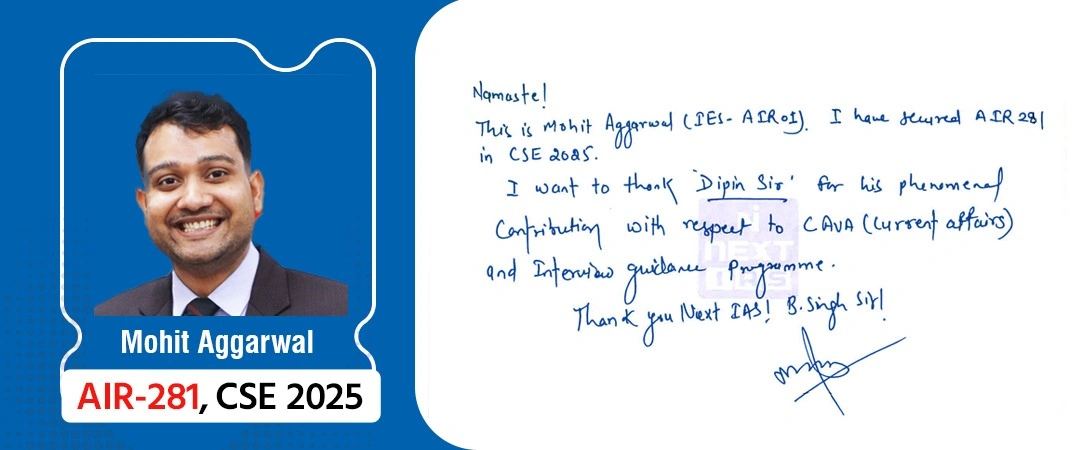 Mohit Aggarwal
AIR-281, CSE 2025
Namaste!
This is Mohit Aggarwal (IES- AIR01). I have secured AIR 281
in CSE 2025.
I want to thank 'Dipin Sir' for his phenomenal
Contribution with respect to CAVA (Current affairs)
and Interview guidance programme.
Thank you Next IAS! B. Singh Sir!
NEXT
IAS